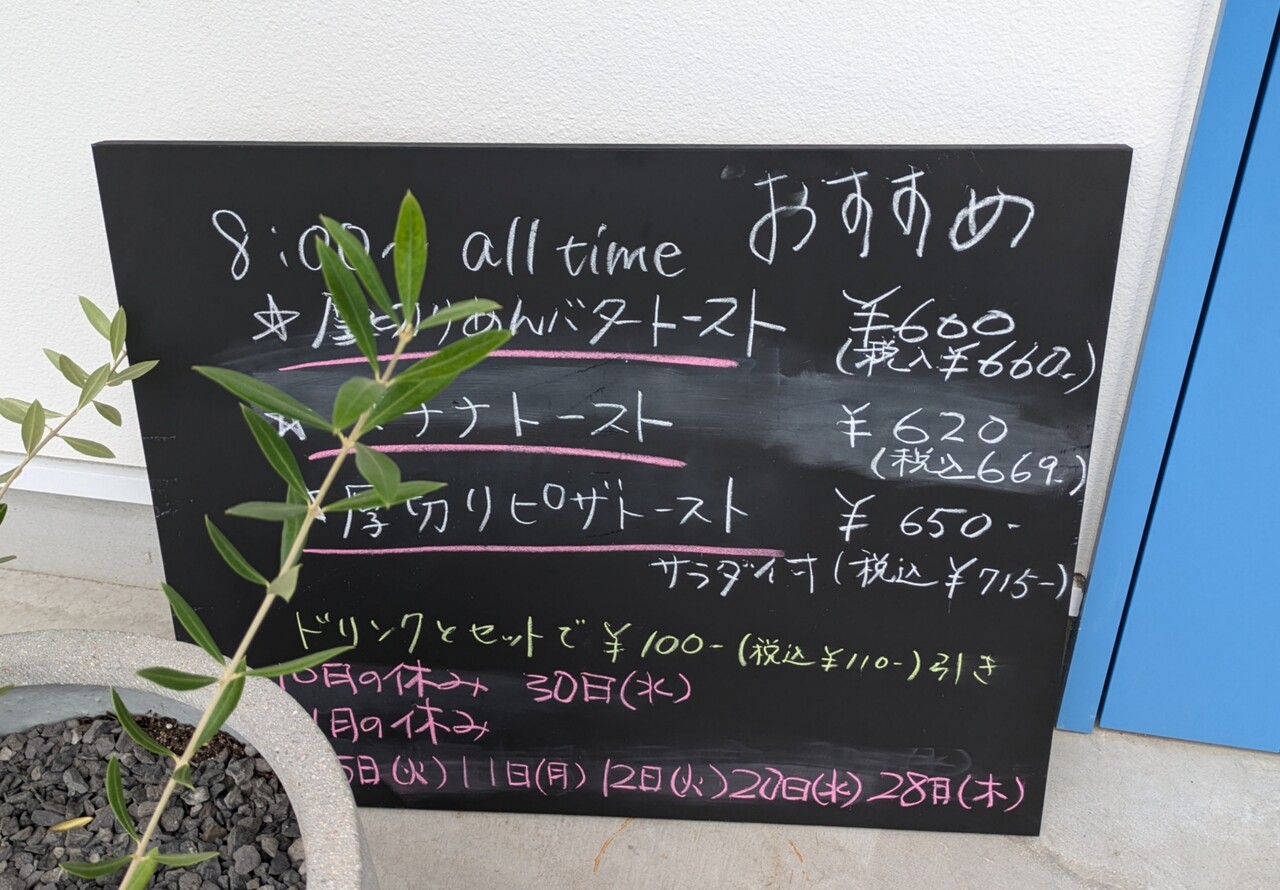 おすすめ
8:00~ all time
☆厚切りあんバタートースト ¥600
(税込¥660-)
☆ナナトースト ¥620
(税込669-)
厚切りピザトースト ¥650-
サラダ付(税込¥715-)
ドリンクとセットで¥100-(税込¥110-)引き
10月の休み 30日(水)
1月の休み
5日(火)11日(月)12日(火)20日(水)28日(木)